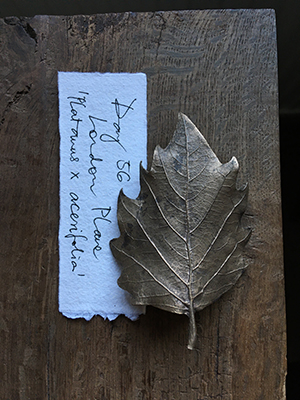 Day 56
London Plane
'Platanus x acerifolia'